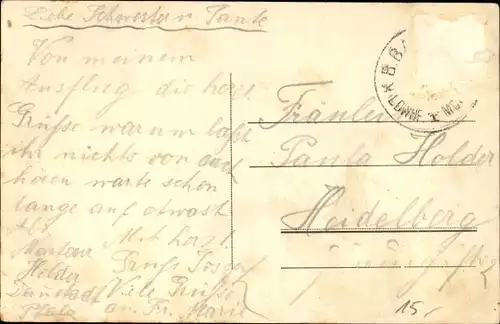 Liebe Schwester u. Tante
Von meinem
Ausflug die herzl.
Grüße warum laßt
ihr nichts von euch
hören warte schon
lange auf etwas
Mit herzl.
Monteur Gruß Josef
Holder Viele Grüße
Danstadt an Fr. Marie
Pfalz
Fräulein
Paula Holder
Heidelberg
15,-